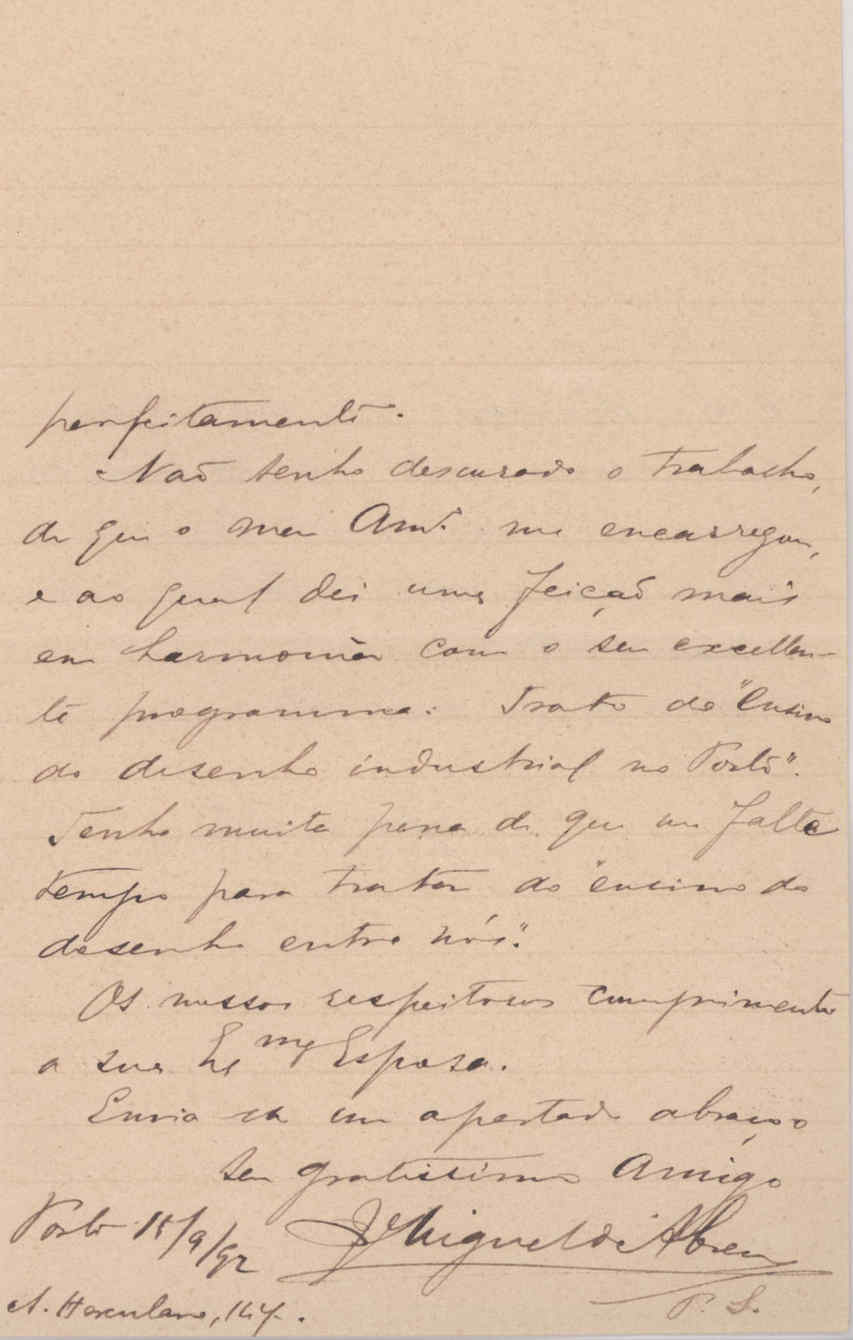 perfeitamente.
Não tenho descurado o trabalho,
de que o meu Am.º me encarregou,
e ao geral dei uma feição mais
em harmonia com o seu excellen-
te programma: Trato do "Ensino
do desenho industrial no Porto".
Tenho muita pena de que me falte
tempo para tratar do "ensino do
desenho entre nós".
Os nossos respeitosos cumprimentos
a sua Esposa.
Envia um apertado abraço
Seu gratissimo Amigo
Porto 15/9/92 J Miguel de Abreu
A. Herculano,
P. S.